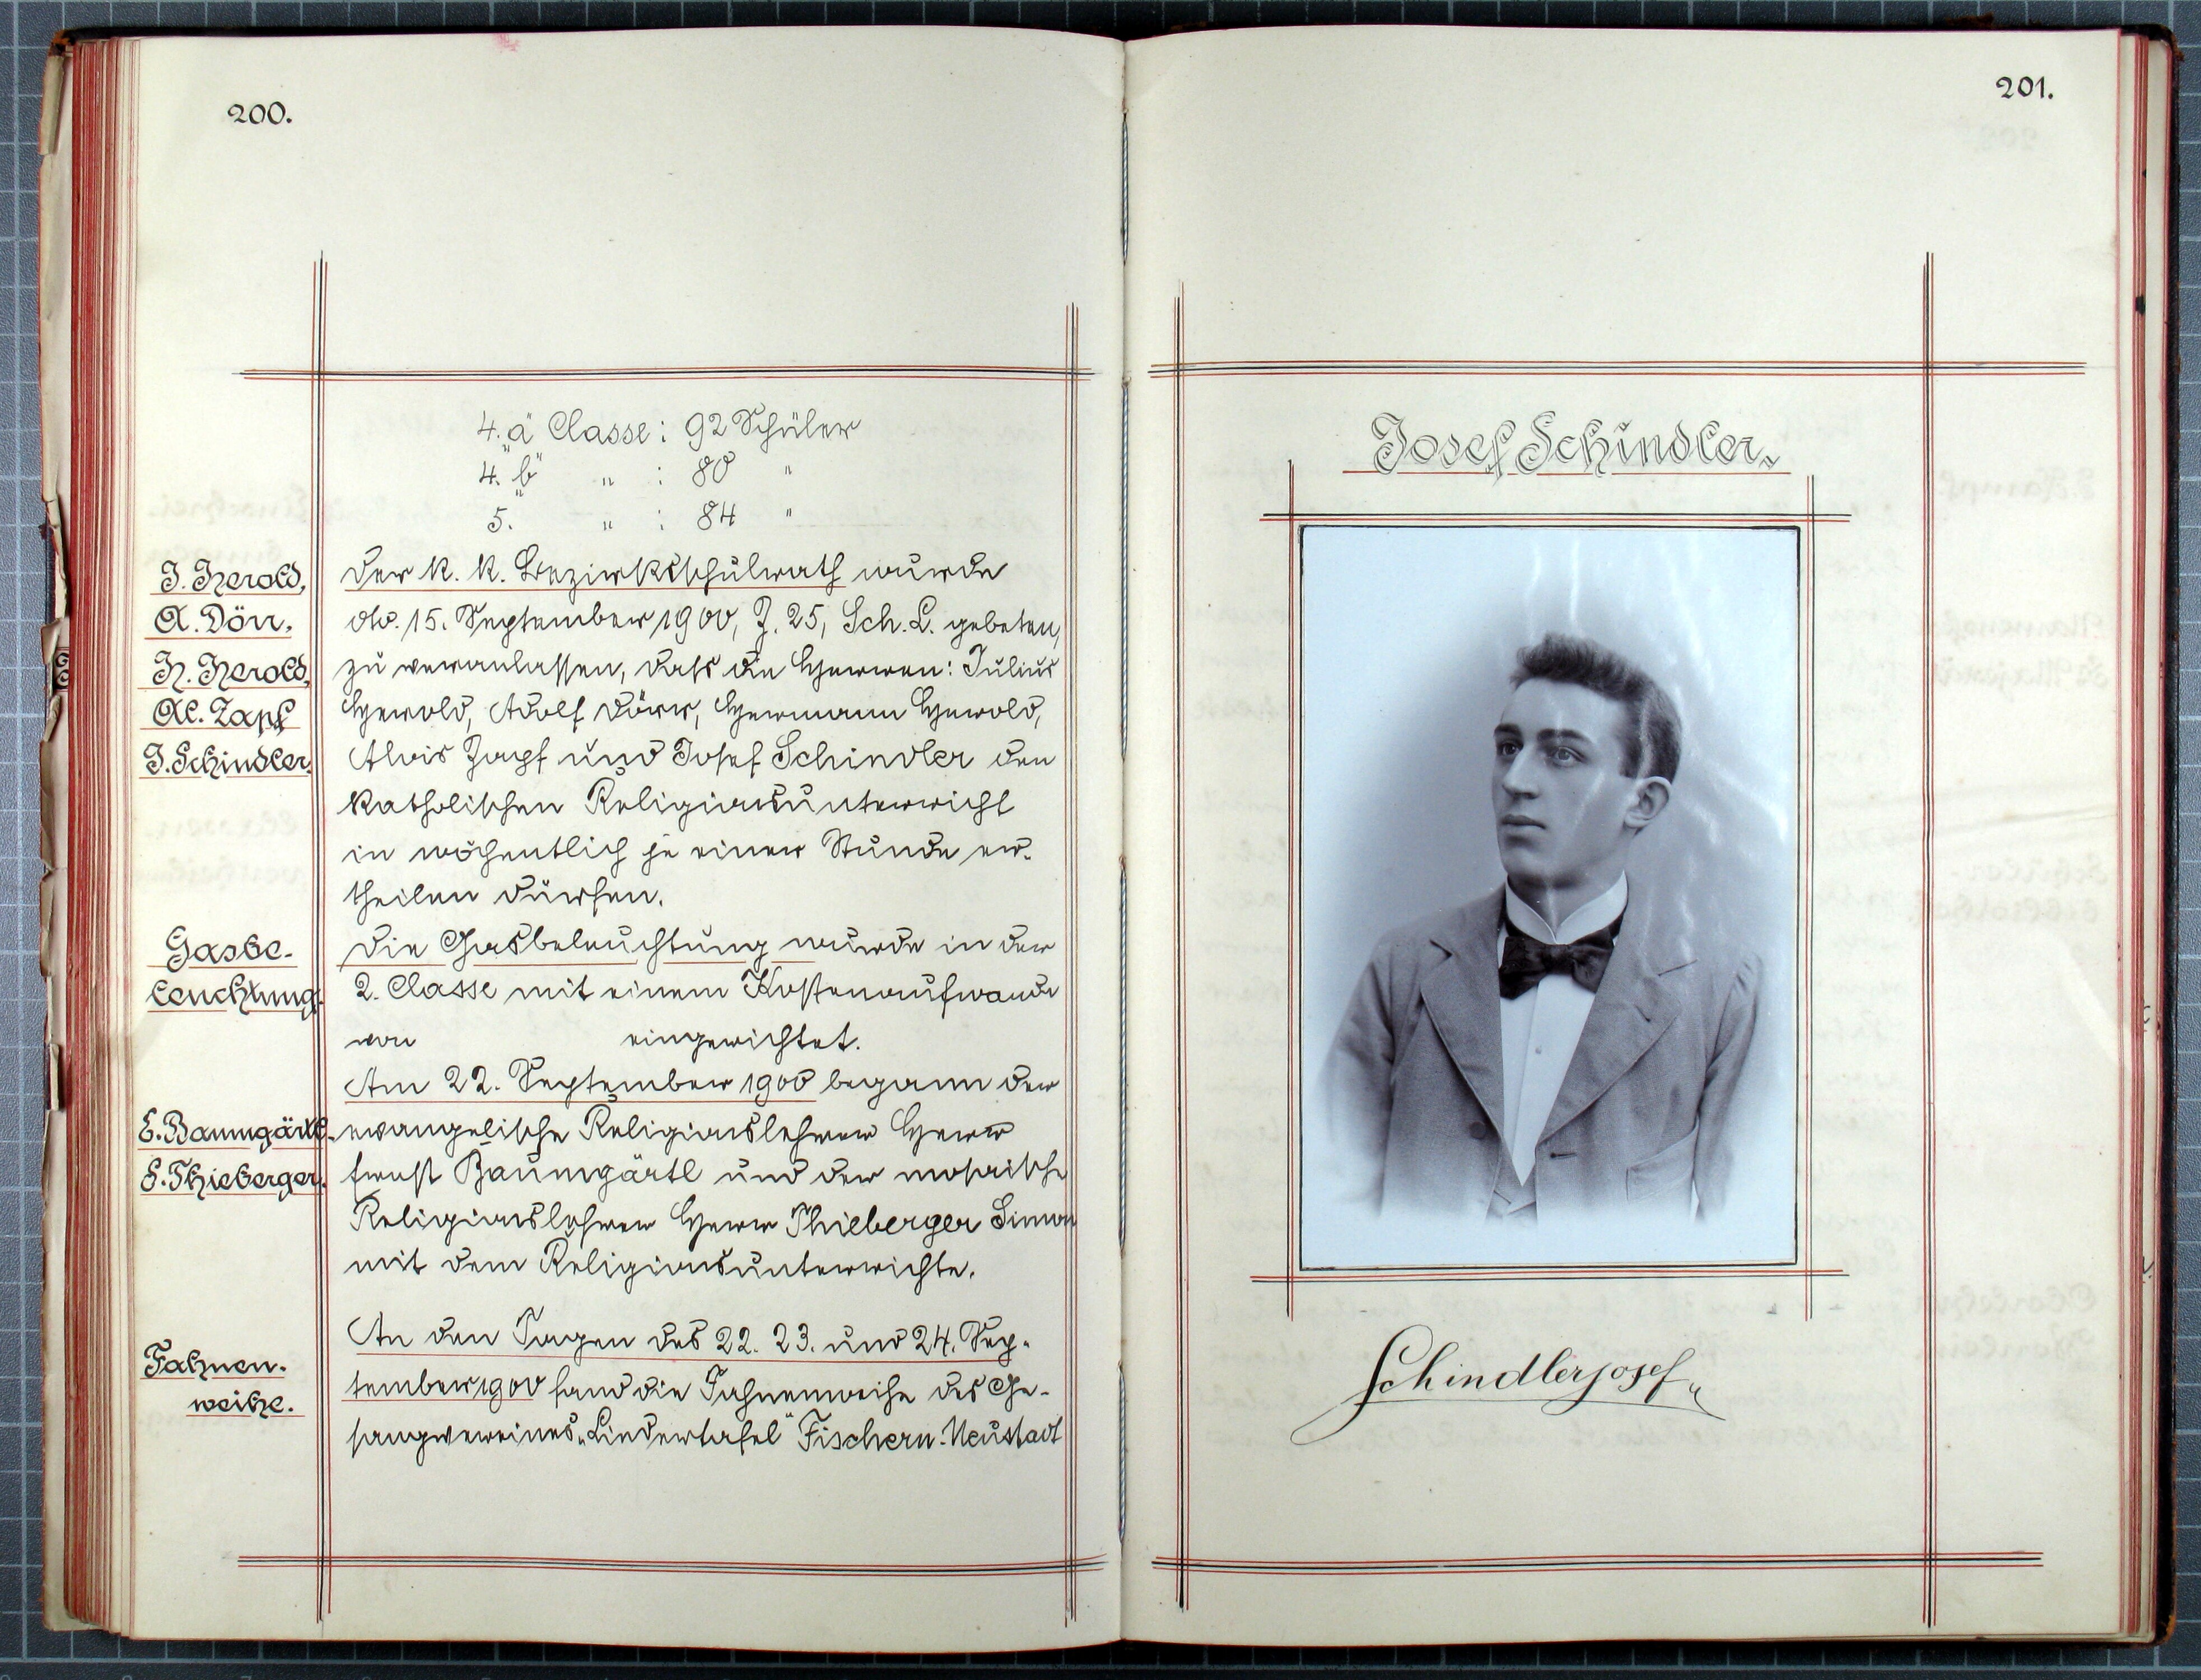 200.
4. „a“ Classe: 92 Schüler
4. „b“ " : 80 "
5. " : 84 "
J. Herold,
A. Dörr,
H. Herold,
Al. Zapf
J. Schindler.
Der k. k. Bezirksschulrath wurde
dto. 15. September 1900, Z. 25, Sch. L. gebeten,
zu veranlassen, dass die Herren: Julius
Herold, Adolf Dörr, Hermann Herold,
Alois Zapf und Josef Schindler den
katholischen Religionsunterricht
in wöchentlich je einer Stunde er-
theilen dürfen.
Gasbe-
leuchtung.
Die Gasbeleuchtung wurde in der
2. Classe mit einem Kostenaufwande
von eingerichtet.
Am 22. September 1900 begann der
E. Baumgärtl.
S. Thieberger.
evangelische Religionslehrer Herr
Ernst Baumgärtl und der mosaische
Religionslehrer Herr Thieberger Simon
mit dem Religionsunterrichte.
Fahnen-
weihe.
An den Tagen des 22. 23. und 24. Sep-
tember 1900 fand die Fahnenweihe des Ge-
sangvereines „Liedertafel“ Fischern-Neustadt
201.
Josef Schindler.
Schindler Josef